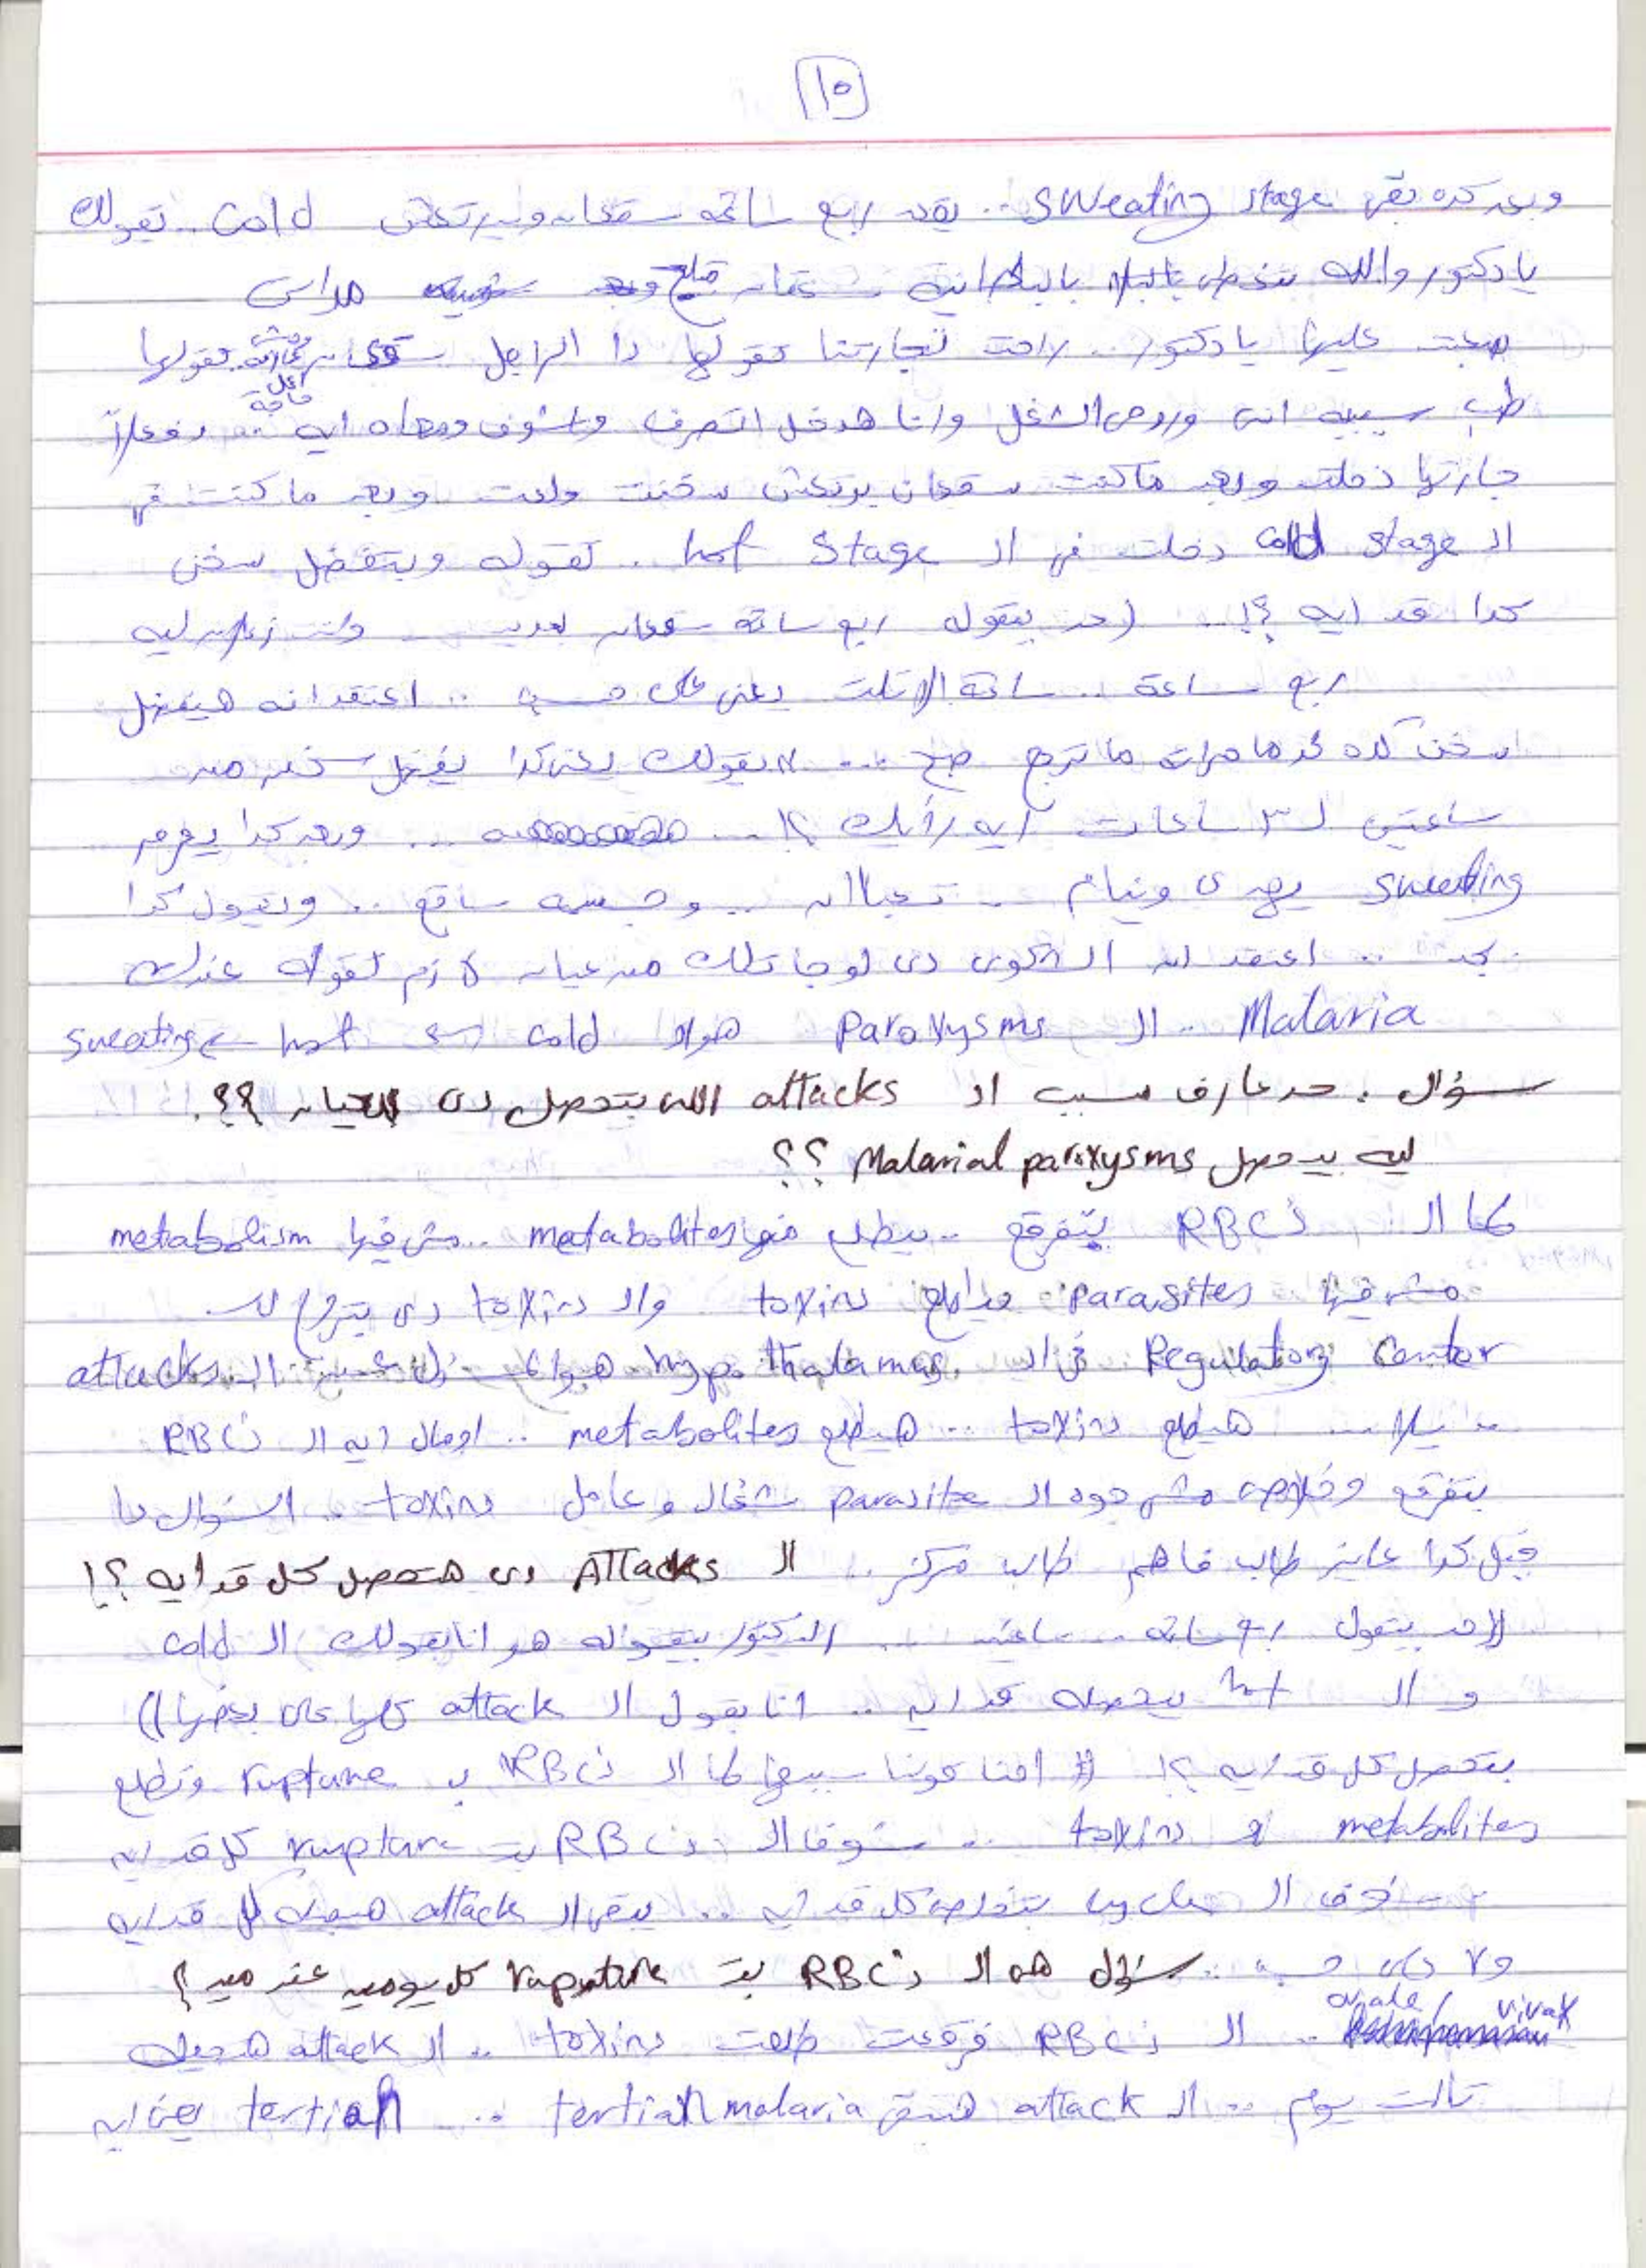 ١٥
وبعد كده بقى sweating stage .. يقعد ربع ساعة سقعان وبيرتعش cold .. تقولك
يا دكتور والله بتغطى بالبطانية سقعان
صعبت عليها يا دكتور .. راحت لجارتنا تقولها دا الراجل سقعان تقولها
طب سيبيه انتى وروحى الشغل وانا هدخل اتصرف واشوف ومعاه ايه .. وفعلاً
جارتها دخلت وبعد ما كنت سقعان بيرتعش سخنت ولعت وبعد ما كنت فى
الـ cold stage دخلت فى الـ hot stage . تقوله وبتفضل سخن
كدا قد ايه ؟! .. (حد بيقوله ربع ساعة سقعان
ربع ساعة .. ساعة الا تلت يعنى على حسب .. اعتقد انه هيفضل
سخن كده لحد ما مراته ما ترجع صح ... لا بقولك يعنى كدا يفضل سخن من
ساعتين لـ ٣ ساعات ايه رأيك ؟! ... وبعد كدا يعرق
sweating يهدى وينام .. تعبااان .. وجسمه ساقع .. وتقول كدا
بجد .. اعتقد ان الشكوى دى لو جاتلك من عيان لازم تقوله عندك
Malaria .. الـ Paroxysms هو الـ cold → hot → sweating
سؤال . حد عارف سبب الـ attacks اللى بتحصل دى للعيان ؟؟ .
ليه بيحصل Malarial paroxysms ؟؟
لما الـ RBCs بتفرقع .. بيطلع منها metabolites .. مش فيها metabolism
مش فيها parasites بيطلع toxins والـ toxins دى بتروح للـ
Regulatory Center فى الـ hypothalamus هو المسئول عن الـ attacks
.. هيطلع toxins .. هيطلع metabolites .. اومال ايه الـ RBCs
بتفرقع وخلاص مش جوه الـ parasite شغال وعامل toxins .. السؤال دا
قبل كدا عايز طالب فاهم طالب مركز .. الـ Attacks دى هتحصل كل قد ايه ؟!
((حد بيقول ربع ساعة .. ساعتين .. الدكتور بيقوله هو انا بقولك الـ cold
و الـ hot بيحصله قد ايه .. انا بقول الـ attack كلها على بعضها))
بتحصل كل قد ايه ؟! احنا قولنا سببها لما الـ RBCs بـ rupture وتطلع
metabolites و toxins .. شوف الـ RBCs بتـ rupture كل قد ايه
شوف الـ cycle بتخلص كل قد ايه .. يبقى الـ attack هتجيله كل قد ايه
ولا دى حسبه .. سؤال هو الـ RBCs بتـ rupture كل يومين عند مين ؟
ovale / vivax .. الـ RBCs فرقعت طلعت toxins .. الـ attack هتجيله
تالت يوم .. الـ attack هتبقى tertian malaria .. tertian يعنى ايه